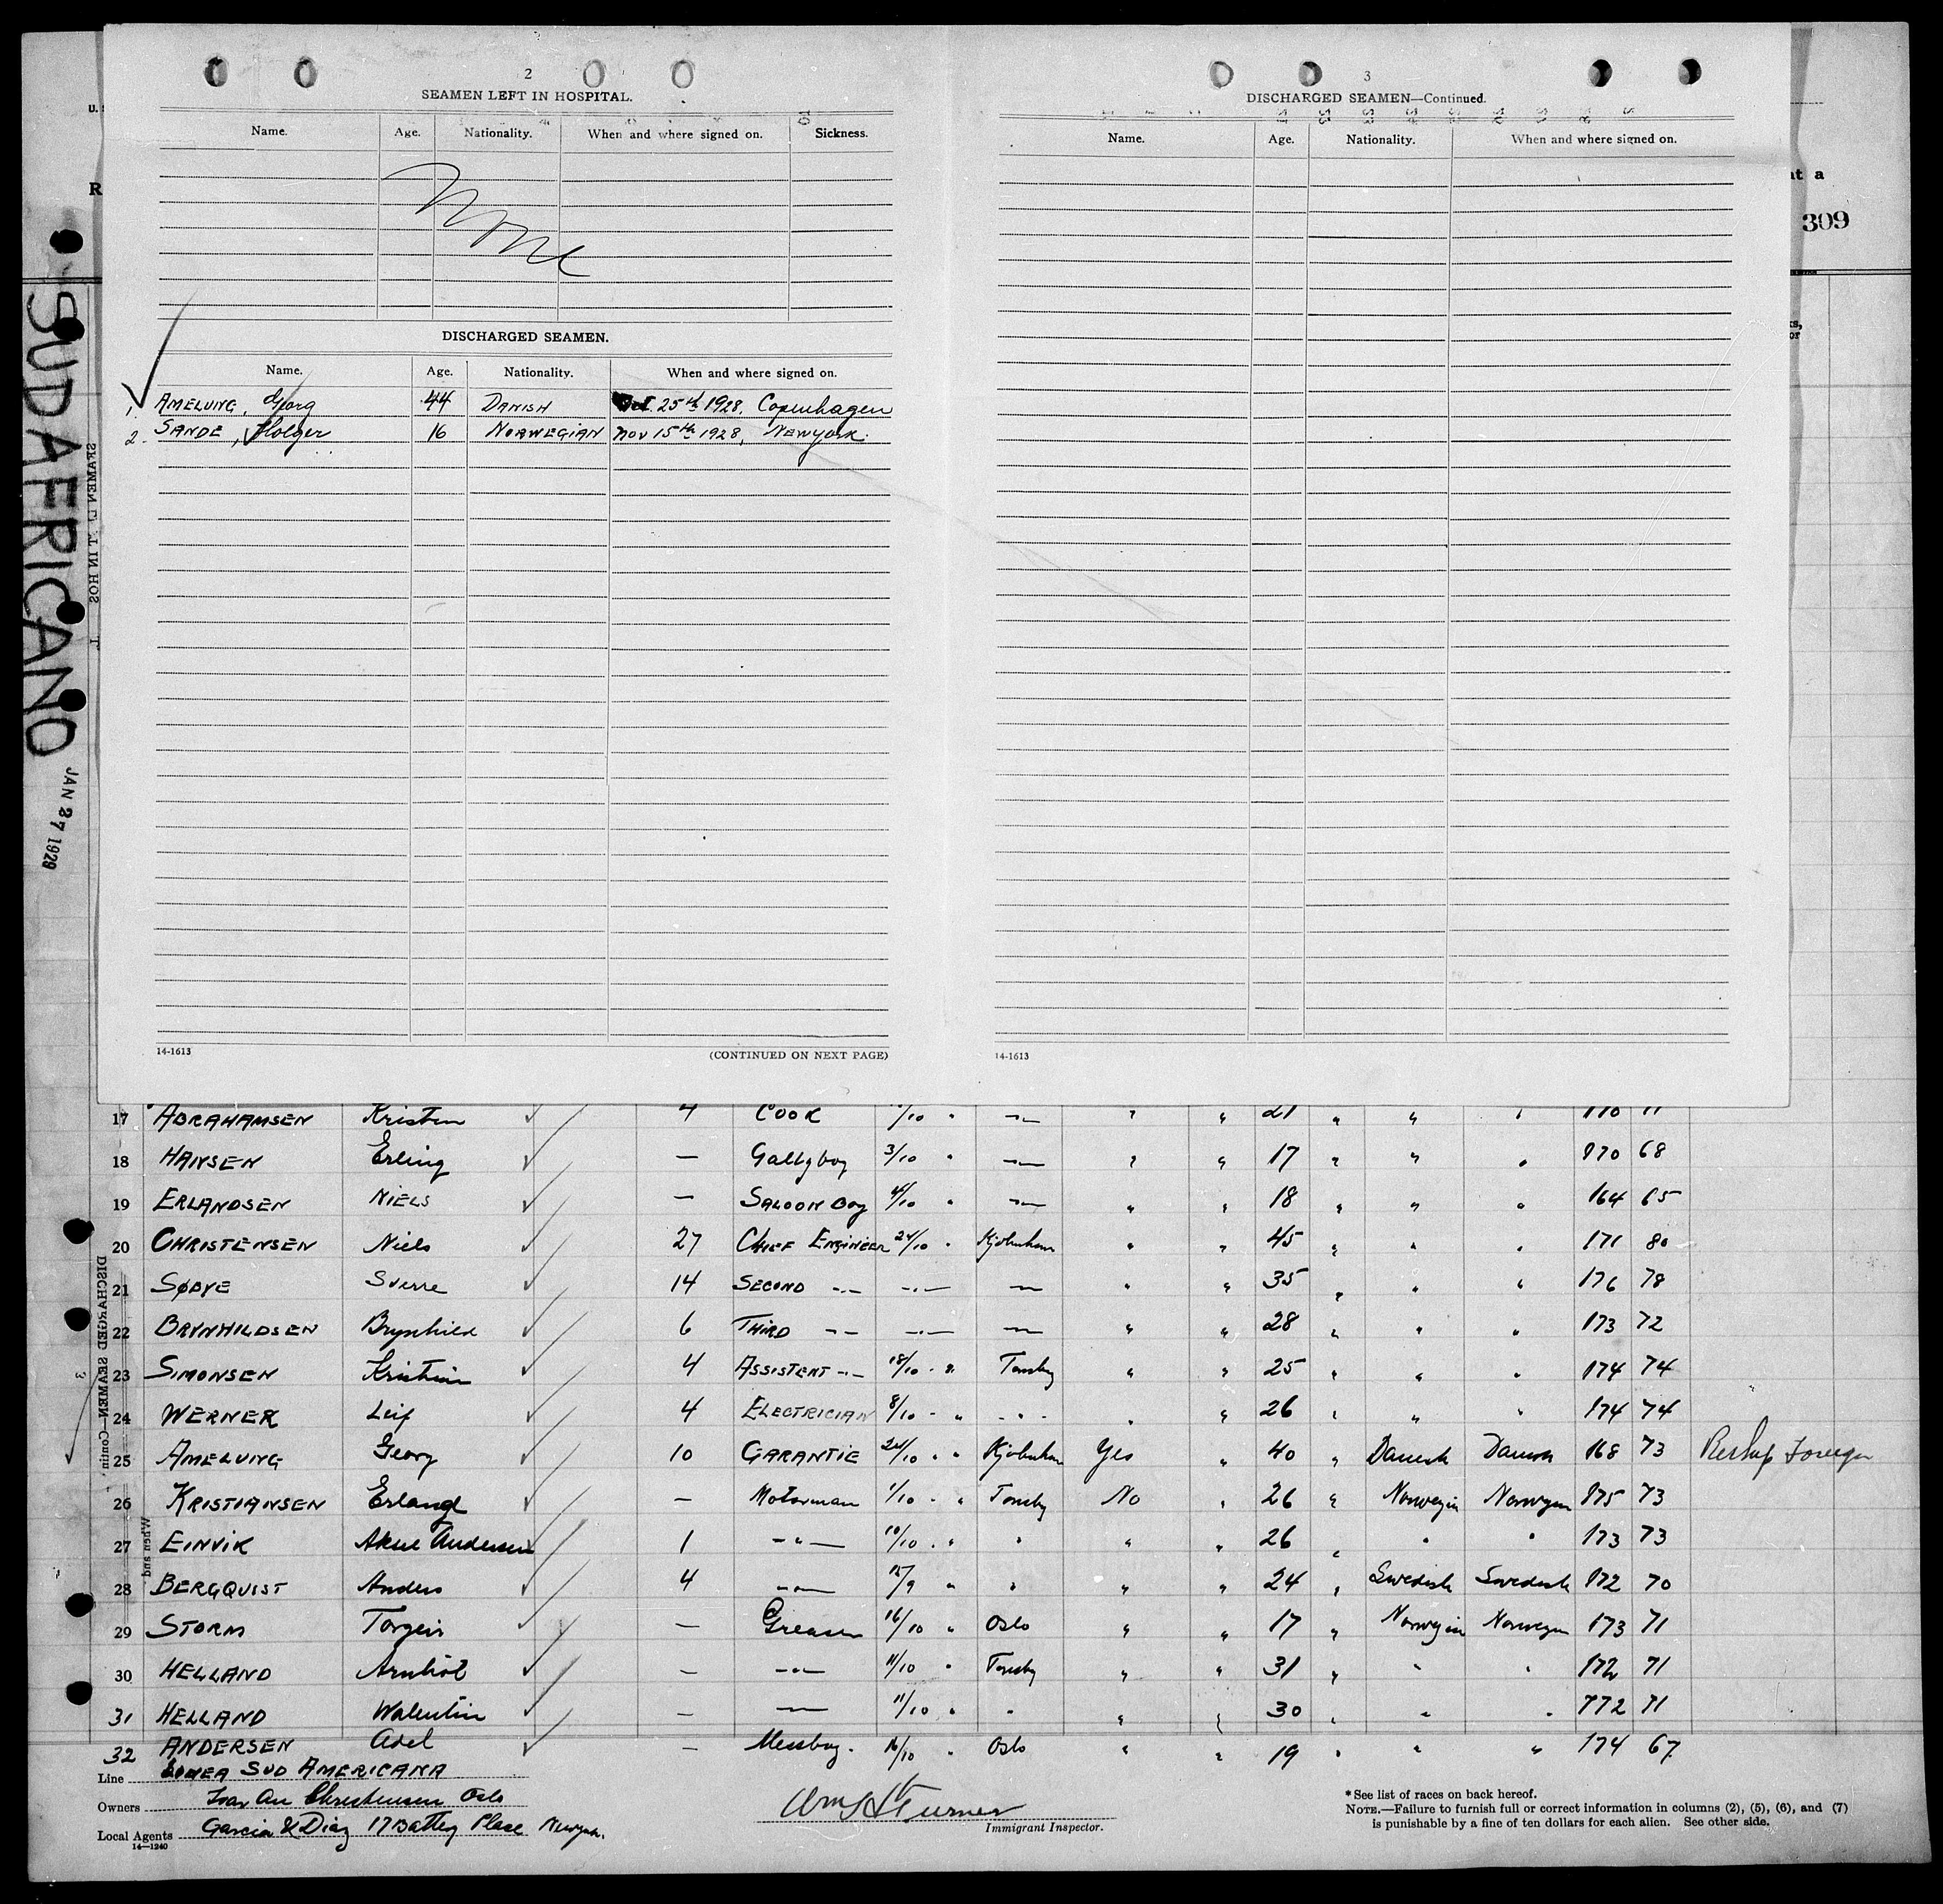 2
SEAMEN LEFT IN HOSPITAL.
Name. Age. Nationality. When and where signed on. Sickness.
None
DISCHARGED SEAMEN.
Name. Age. Nationality. When and where signed on.
1. AMELUNG, Georg 44 DANISH Oct. 25th 1928, Copenhagen
2. SANDE, Holger 16 NORWEGIAN Nov 15th 1928, New york.
14-1613 (CONTINUED ON NEXT PAGE)
3
DISCHARGED SEAMEN—Continued.
Name. Age. Nationality. When and where signed on.
14-1613
309
SUD AFRICANO
JAN 27 1929
17 ABRAHAMSEN Kristen 4 COOK /10 " -"- " " 21 " " " 170 71
18 HANSEN Erling — Galleyboy 3/10 " -"- " " 17 " " " 170 68
19 ERLANDSEN NIELS — SALOON Boy 4/10 " -"- " " 18 " " " 164 65
20 CHRISTENSEN Niels 27 CHIEF ENGINEER 24/10 " Kjöbenhavn " " 45 " " " 171 80
21 SØBYE Sverre 14 SECOND -"- -"- -"- " " 35 " " " 176 78
22 BRYNHILDSEN Brynhild 6 THIRD -"- -"- -"- " " 28 " " " 173 72
23 SIMONSEN Kristian 4 ASSISTENT -"- 18/10 " " Tonsberg " " 25 " " " 174 74
24 WERNER Leif 4 ELECTRICIAN 8/10 " " -"- " " 26 " " " 174 74
25 AMELUNG Georg 10 GARANTIE 24/10 " " Kjöbenhavn Yes " 40 " Danish Danish 168 73 Reship Foreign
26 KRISTIANSEN Erland — Motorman 1/10 " " Tonsberg No " 26 " Norwegian Norwegian 175 73
27 EINVIK Aksel Andersen 1 -"- 10/10 " " " " " 26 " " " 173 73
28 BERGQUIST Anders 4 -"- 15/9 " " " " 24 " Swedish Swedish 172 70
29 STORM Torgeir — Greaser 16/10 " Oslo " " 17 " Norwegian Norwegian 173 71
30 HELLAND Arnhol — -"- 11/10 " Tonsberg " " 31 " " " 172 71
31 HELLAND Walentin — -"- 11/10 " " " " 30 " " " 172 71
32 ANDERSEN Adel — Messboy. 16/10 " Oslo " " 19 " " " 174 67
Line LINEA SUD AMERICANA
Owners Ivar An Christensen Oslo
Local Agents Garcia & Diaz 17 Battery Place Newyork.
14—1240
Wm H Turner
Immigrant Inspector.
*See list of races on back hereof.
NOTE.—Failure to furnish full or correct information in columns (2), (5), (6), and (7)
is punishable by a fine of ten dollars for each alien. See other side.